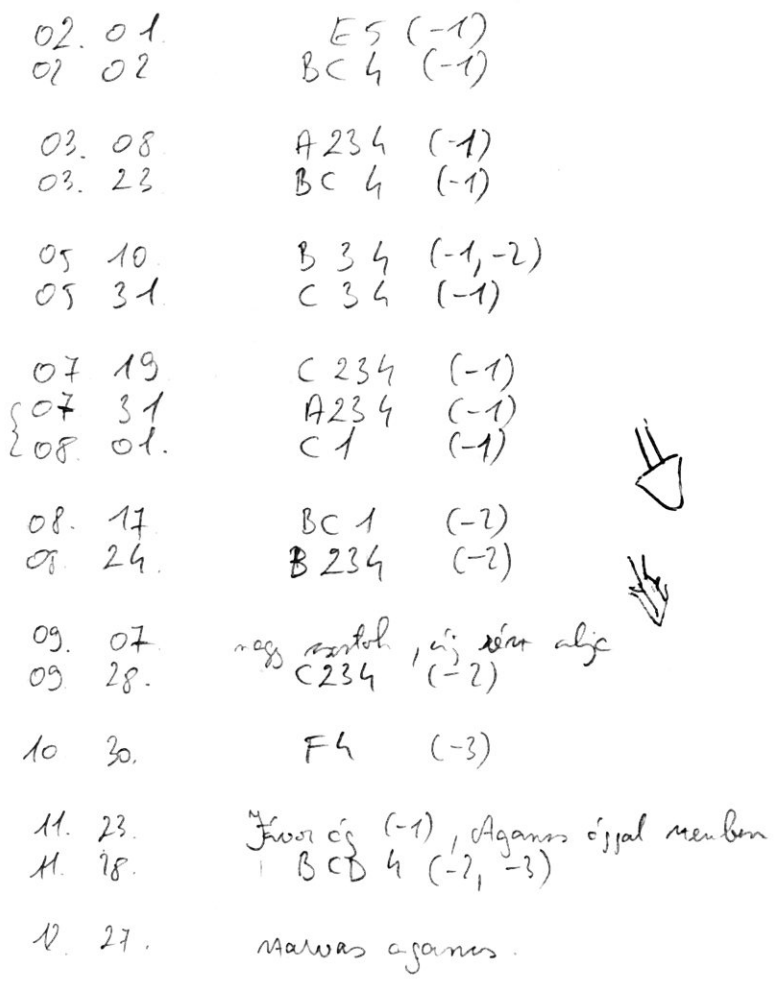 02. 01. E5 (-1)
02 02 BC 4 (-1)
03. 08 A234 (-1)
03. 23 BC 4 (-1)
05 10 B 34 (-1,-2)
05 31 C 34 (-1)
07 19 C 234 (-1)
07 31 A234 (-1)
08. 01. C1 (-1)
08. 17 BC 1 (-2)
08 24. B 234 (-2)
09. 07 nagy, új alja
09 28. C234 (-2)
10 30. F4 (-3)
11. 23. Jávor ág (-1), Agancs
11. 28. BCD 4 (-2, -3)
12. 27. szarvas agancs.